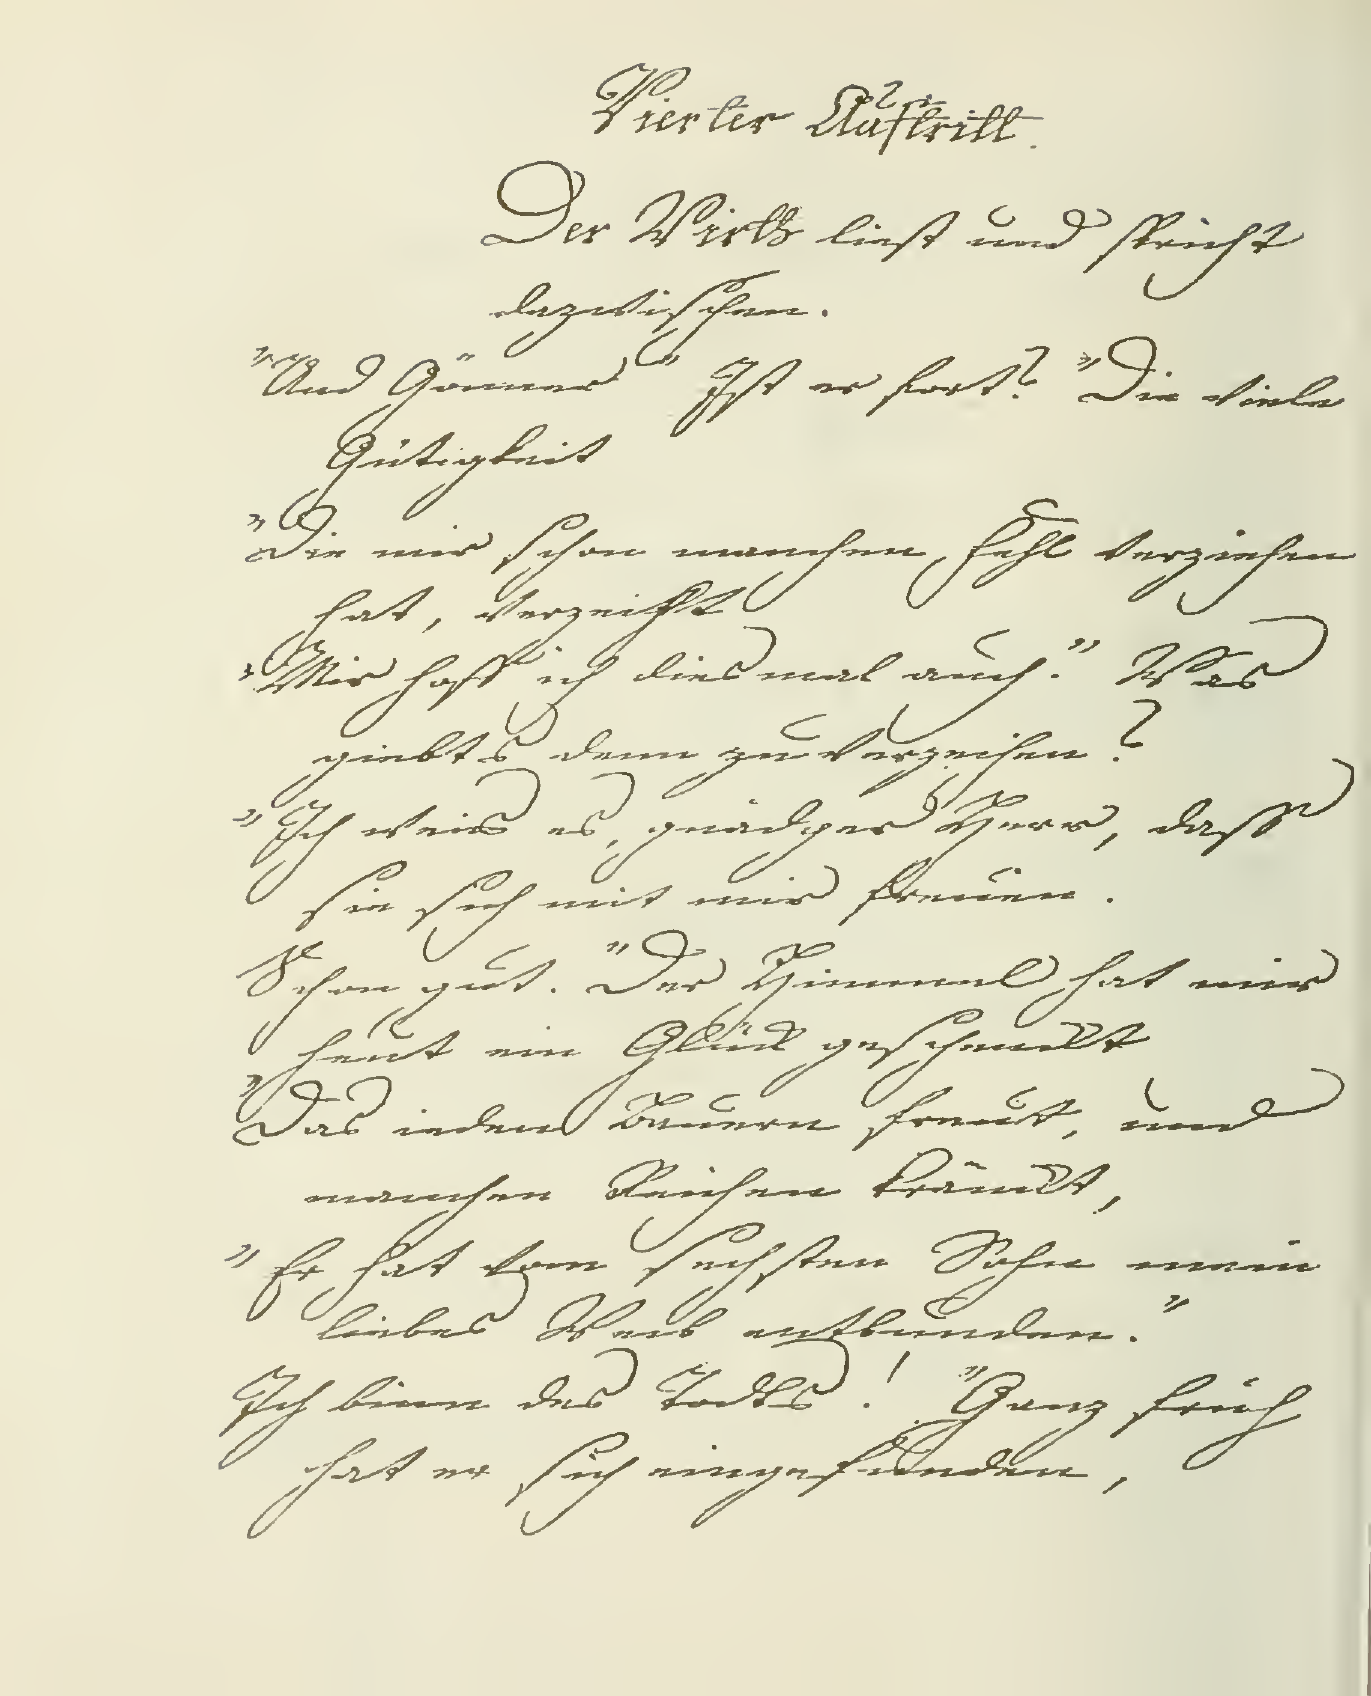 Vierter Auftritt.
Der Wirth liest und spricht
dazwischen.
"Und Gönner" Ist er fort? "Die viele
Gütigkeit
"Die mir schon manchen Fehl verziehen
hat, verzeiht
"Mir hoff ich diesmal auch." Was
giebts denn zu verzeihen?
"Ich weis es, gnädger Herr, dass
sie sich mit mir freuen.
Schon gut. "Der Himmel hat mir
heut ein Glück geschenckt
"Das ieden Bauern freut, und
manchen Reichen kränckt,
"Er hat vom sechsten Sohn mein
liebes Weib entbunden."
Ich binn des Todts! "Ganz früh
hat er sich eingefunden,